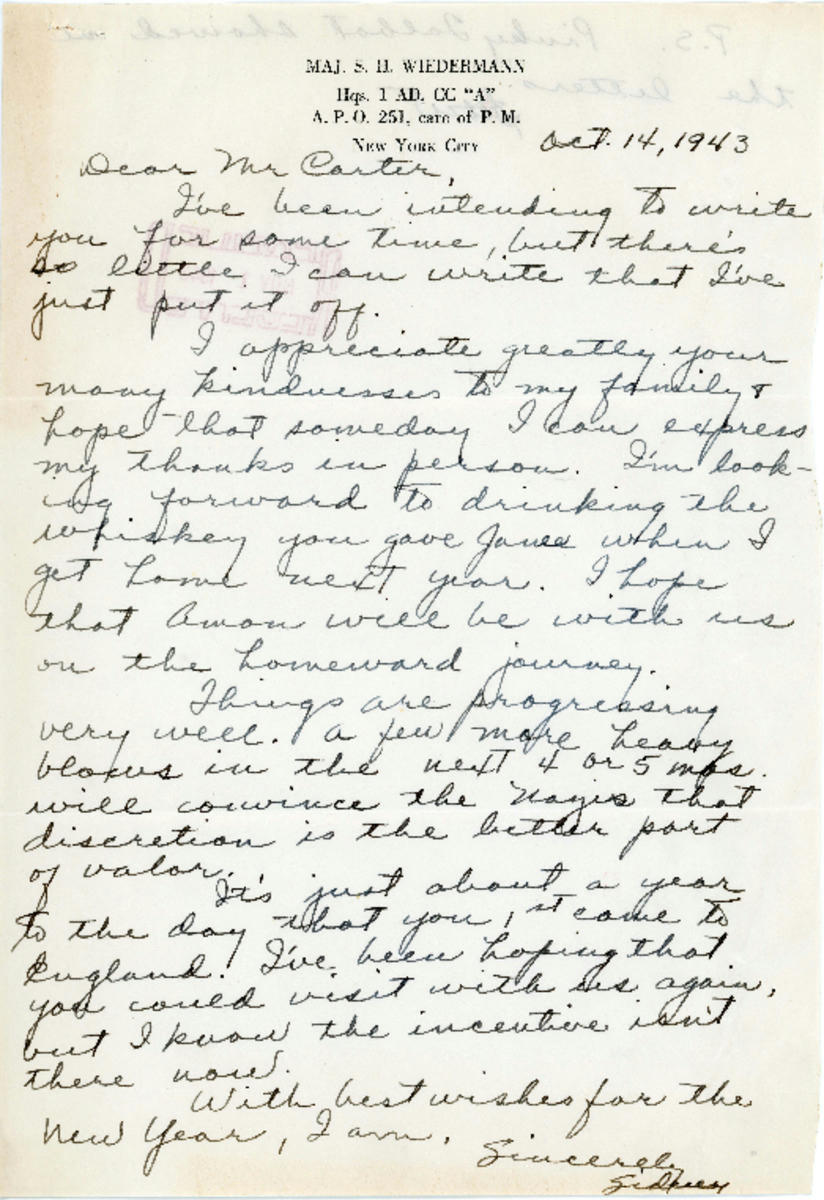 MAJ. S. H. WIEDERMANN
Hqs. 1 AD. CC "A"
A. P. O. 251, care of P. M.
NEW YORK CITY
Oct. 14, 1943
Dear Mr Carter,
I've been intending to write
you for some time, but there's
so little I can write that I've
just put it off.
I appreciate greatly your
many kindnesses to my family &
hope that someday I can express
my thanks in person. I'm look-
ing forward to drinking the
whiskey you gave Janee when I
get home next year. I hope
that Amon will be with us
on the homeward journey.
Things are progressing
very well. A few more heavy
blows in the next 4 or 5 mos.
will convince the Nazis that
discretion is the better part
of valor.
It's just about a year
to the day that you 1st came to
England. I've been hoping that
you could visit with us again,
but I know the incentive isn't
there now.
With best wishes for the
New Year, I am,
Sincerely
Sidney
P.S. Pinky Talbot showed me
the letters